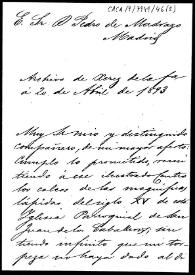 CACA/9/7949/46(2)
E. Sr. D. Pedro de Madrazo
Madrid
Archivo de Xerez de la fra
á 20 de Abril de 1893
Muy Sr. mio y distinguido
compañero, de mi mayor afecto:
Cumplo lo prometido, remi
tiendo á
los calcos de las magnificas
lápidas, del siglo XV de esta
Iglesia Parroquial de San
Juan de los Caballeros; sin
tiendo infinito que mi tor
peza no haya dado al